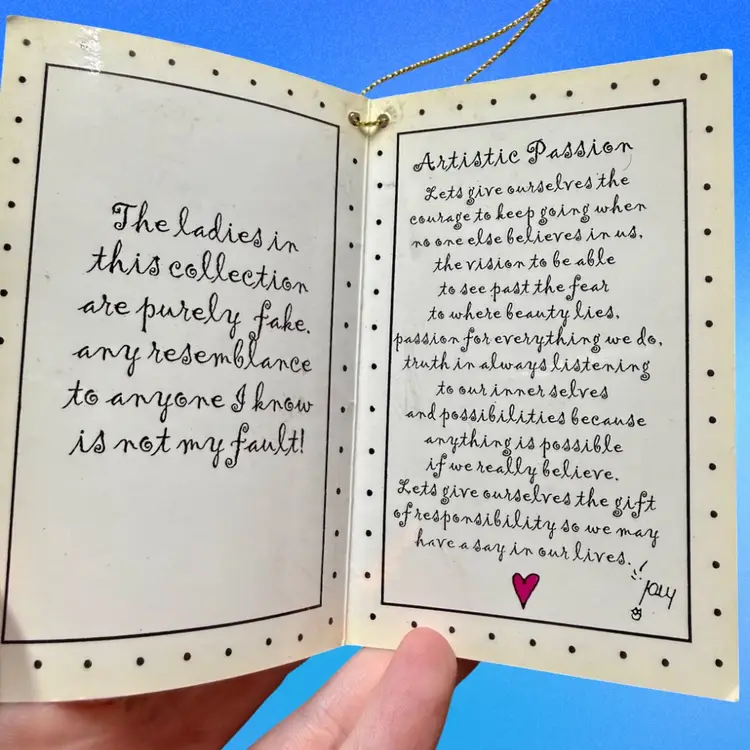 The ladies in
this collection
are purely fake.
any resemblance
to anyone I know
is not my fault!
Artistic Passion
Lets give ourselves the
courage to keep going when
no one else believes in us,
the vision to be able
to see past the fear
to where beauty lies,
passion for everything we do,
truth in always listening
to our inner selves
and possibilities because
anything is possible
if we really believe.
Lets give ourselves the gift
of responsibility so we may
have a say in our lives.